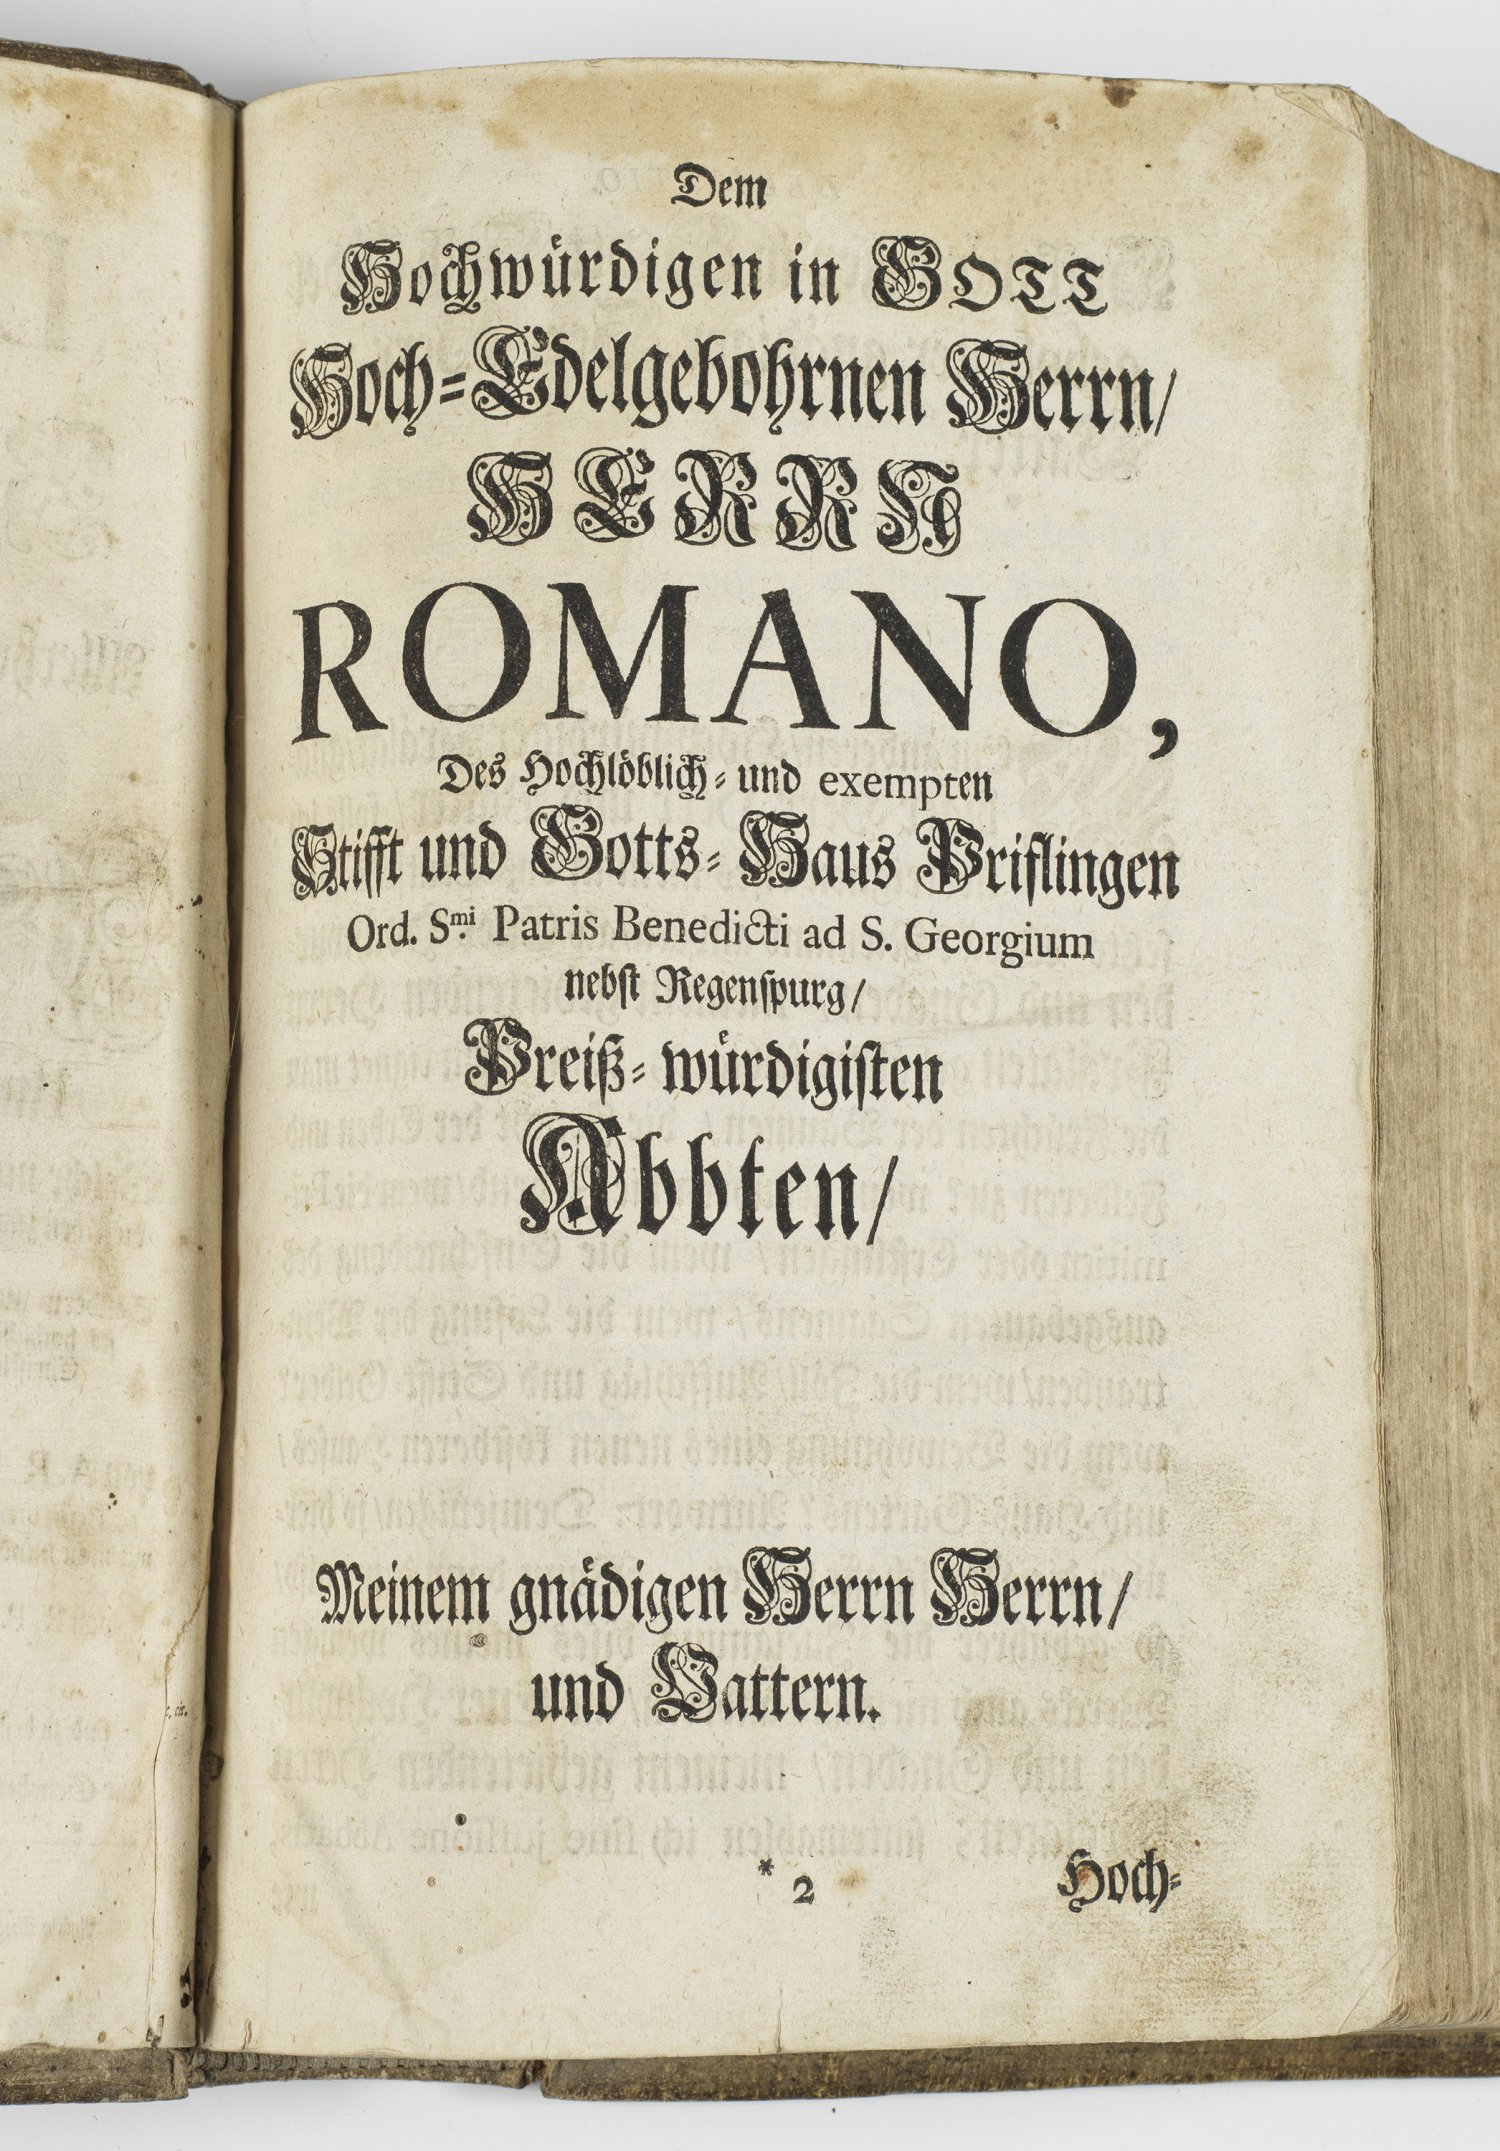 Dem
Hochwürdigen in GOTT
Hoch-Edelgebohrnen Herrn/
HERRN
ROMANO,
Des Hochlöblich- und exempten
Stifft und Gotts-Haus Priflingen
Ord. Smi. Patris Benedicti ad S. Georgium
nebſt Regenſpurg/
Preiß-würdigiſten
Abbten/
Meinem gnädigen Herrn Herrn/
und Vattern.
* 2
Hoch-